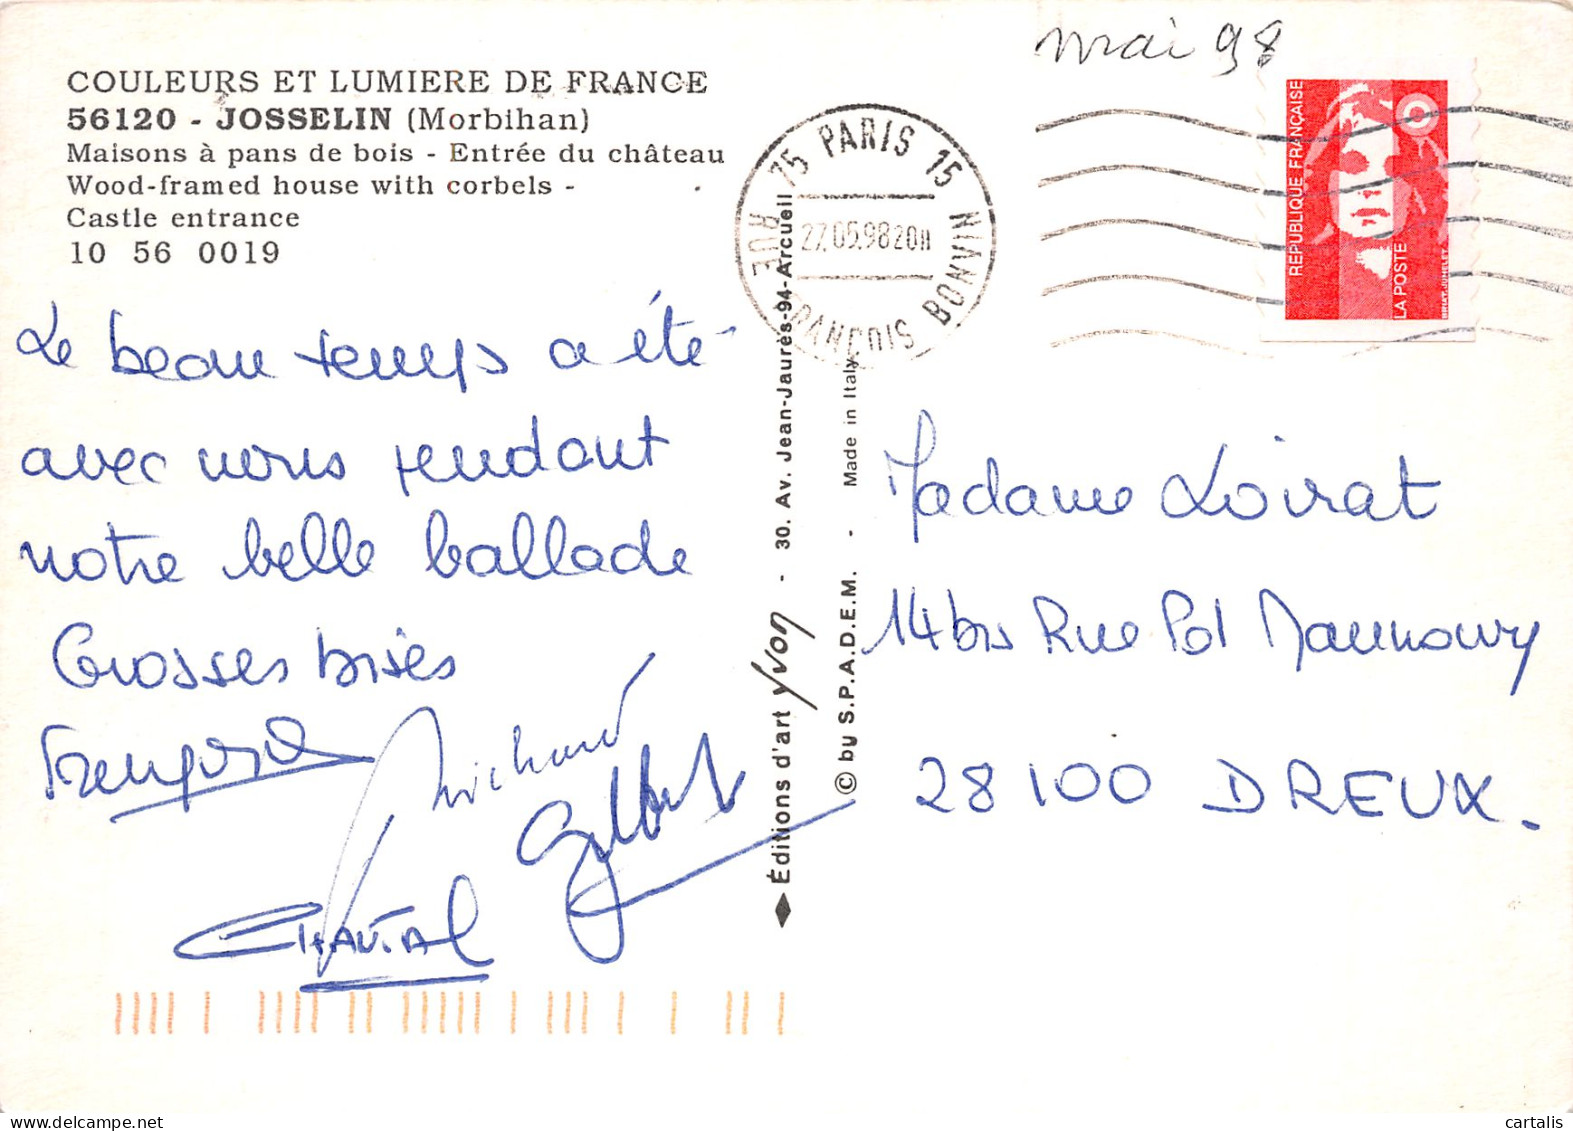 mai 98
COULEURS ET LUMIERE DE FRANCE
56120 - JOSSELIN (Morbihan)
Maisons à pans de bois - Entrée du château
Wood-framed house with corbels -
Castle entrance
10 56 0019
75 PARIS 15
RUE FRANÇOIS BONVIN
27.05.98 20H
REPUBLIQUE FRANÇAISE
LA POSTE
Le beau temps a été
avec nous pendant
notre belle ballade
Grosses bises
Richard
Gilbert
CHANTAL
◆ Éditions d'art yvon - 30. Av. Jean-Jaurès-94-Arcueil
© by S.P.A.D.E.M. - Made in Italy
Madame Loirat
14 bis Rue Pol Maunoury
28100 DREUX.
cartalis